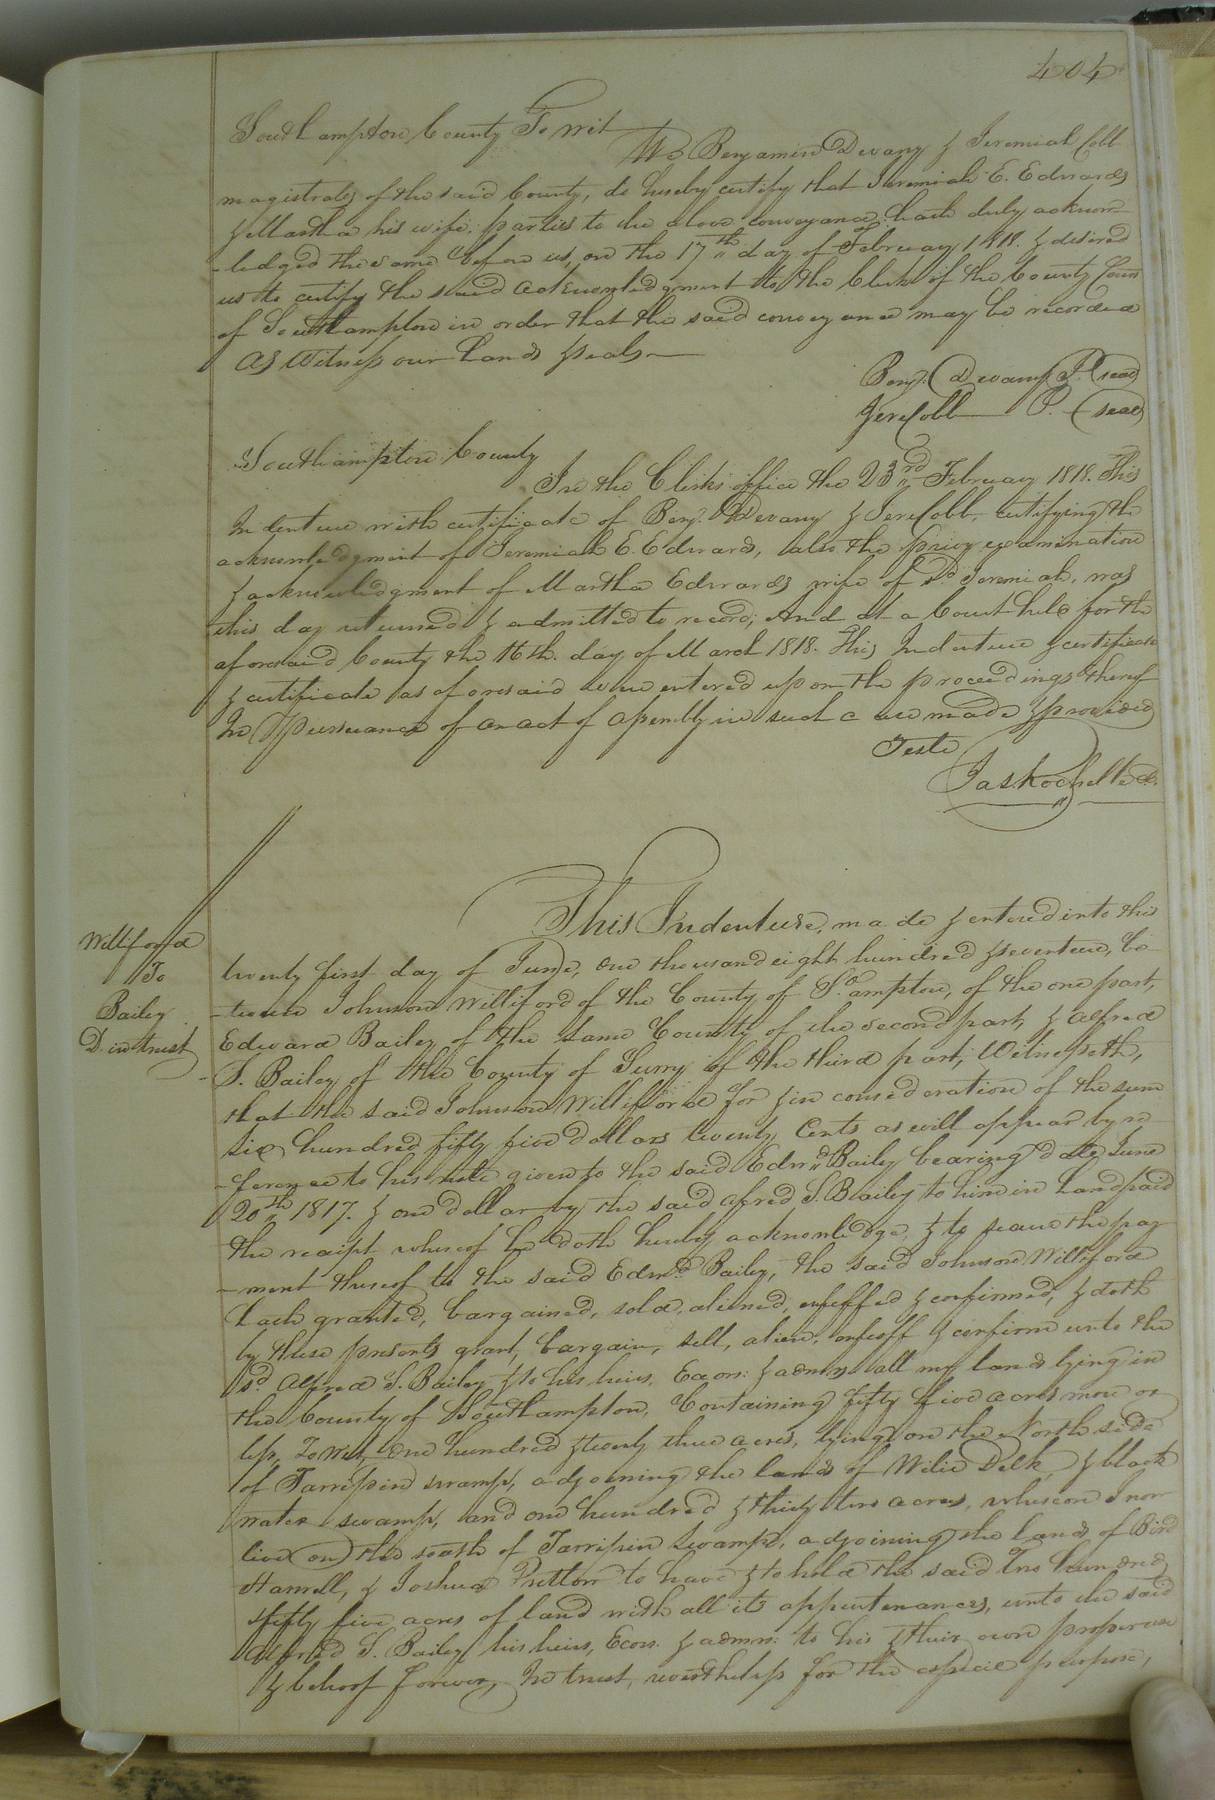 404
Southampton County To wit
We Benjamin Devany & Jeremiah Cobb
magistrates of the said County, do hereby certify that Jeremiah E. Edwards
& Martha his wife, parties to the above conveyance hath duly acknow-
-ledged the same before us, on the 17th day of February 1818. & desired
us to certify the said acknowledgment to the Clerk of the County Court
of Southampton in order that the said conveyance may be recorded
As Witness our hands & seals
Benj. Devany J.P. (seal)
Jere Cobb P. (seal)
Southampton County
In the Clerks office the 23rd February 1818. This
Indenture with certificate of Benj. Devany & Jere Cobb, certifying the
acknowledgment of Jeremiah E. Edwards, also the privy examination
& acknowledgment of Martha Edwards wife of sd Jeremiah, was
this day returned & admitted to record; And at a Court held for the
aforesaid County the 16th. day of March 1818. This Indenture & certificate
& certificate as aforesaid were entered upon the proceedings thereof
In pursuance of an act of Assembly in such case made & provided
Teste
Jas Rochelle C.
Williford
To
Bailey
D. in trust
This Indenture, made & entered into this
twenty first day of June, one thousand eight hundred & seventeen, be-
-tween Johnson Williford of the County of So.ampton, of the one part,
Edward Bailey of the same County of the second part, & Alfred
S. Bailey of the County of Surry of the third part; Witnesseth,
that the said Johnson Williford for & in consideration of the sum
six hundred fifty five dollars twenty Cents as will appear by re-
-ference to his note given to the said Edwd Bailey bearing date June
20th 1817. & one dollar by the said Alfred S. Bailey to him in hand paid
the receipt whereof he doth hereby acknowledge, & to secure the pay
-ment thereof to the said Edwd. Bailey, the said Johnson Williford
hath granted, bargained, sold, aliened, enfeffed & confirmed, & doth
by these presents grant, bargain, sell, alien, enfeoff & confirm unto the
sd. Alfred S. Bailey & to his heirs, Exors: & admrs all my lands lying in
the County of Southampton, Containing fifty five acres more or
less, To Wit, one hundred & twenty three acres, lying on the North side
of Tarripin swamp, adjoining the lands of Wilie Delk, & black
water swamp, and one hundred & thirty two acres, whereon I now
live on the south of Tarripin Swamp, adjoining the lands of Bird
Harrell, & Joshua Pretlow to have & to hold the said Two hundred
& fifty five acres of land with all its appurtenances, unto the said
Alfred S. Bailey his heirs, Exors. & admrs: to his & their own proper use
& behoof forever, In trust, nevertheless for the especial purpose,